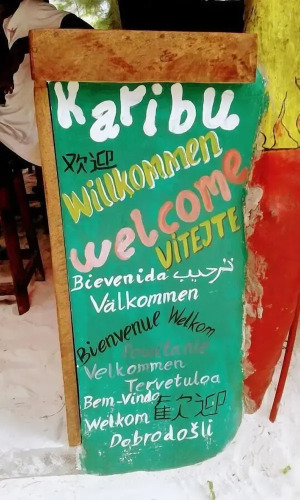 Karibu
欢迎
Willkommen
welcome
VÍTEJTE
Bievenida ترحيب
Välkommen
Bienvenue Welkom
Powitanie
Velkommen
Tervetuloa
Bem-Vindo 歡迎
Welkom
Dobrodošli